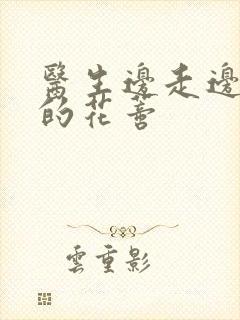 醫生邊走邊
的花蕾
雲重影